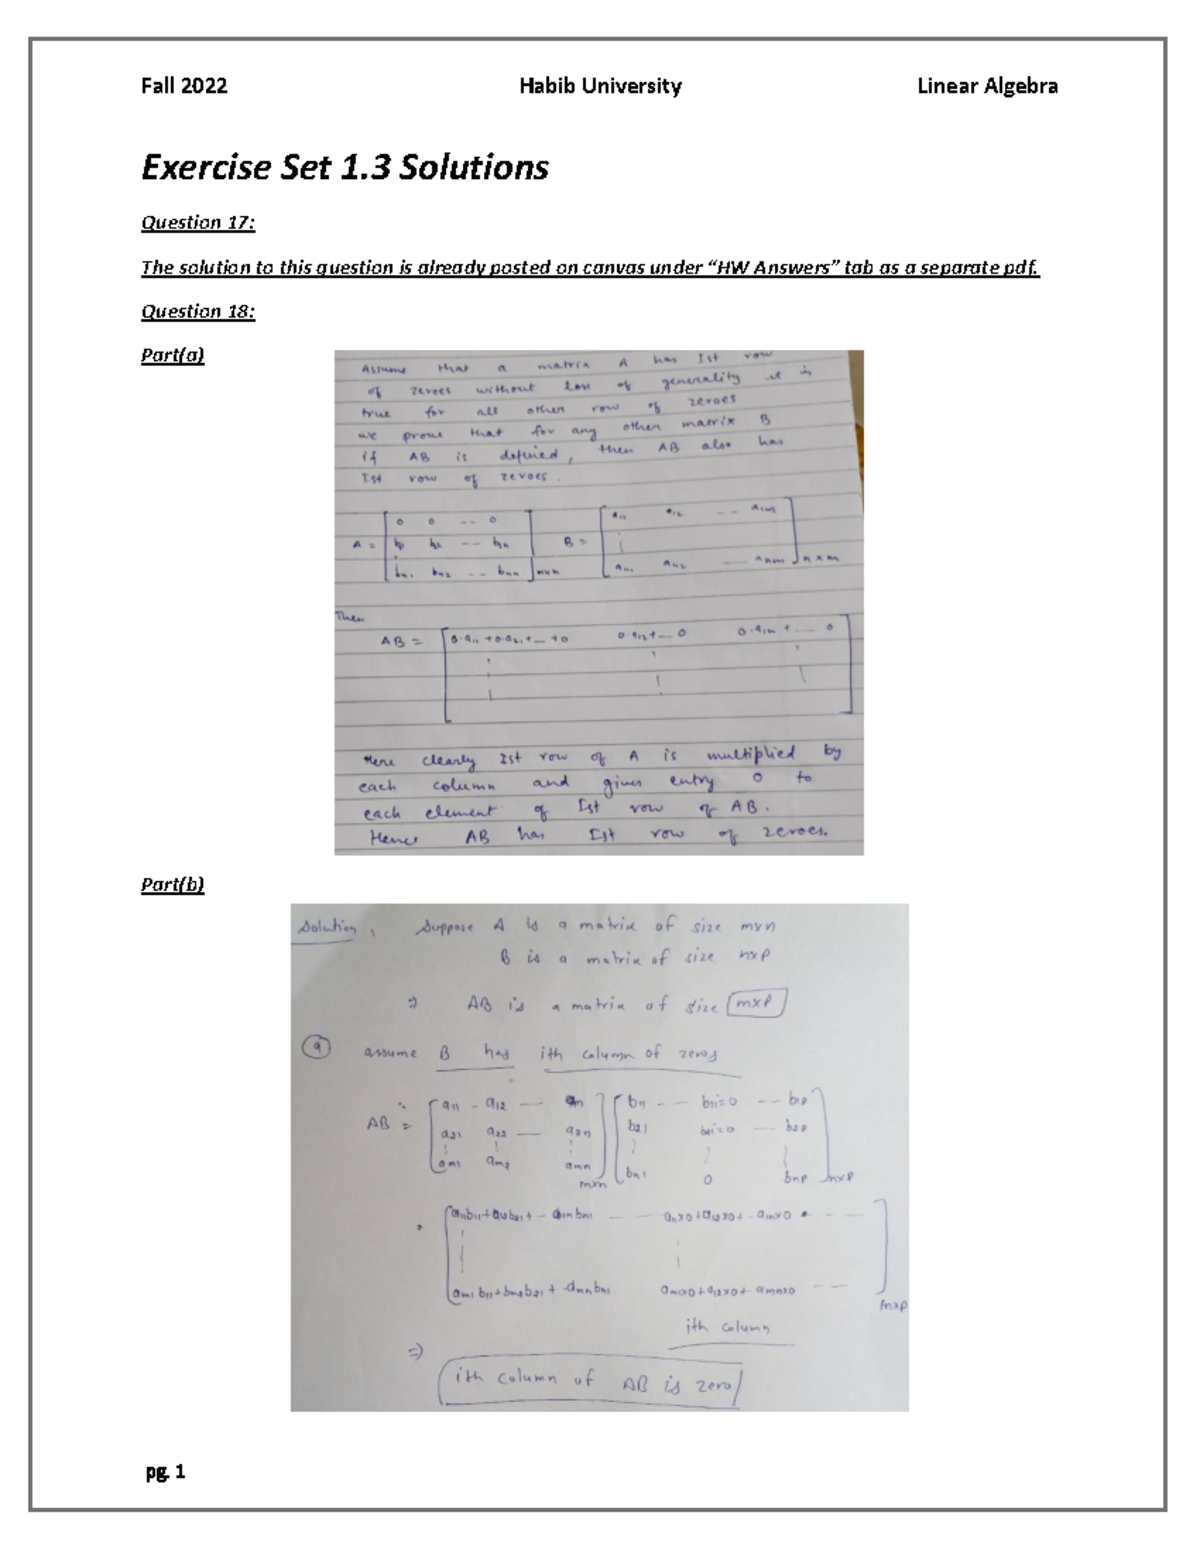 Fall 2022 Habib University Linear Algebra
Exercise Set 1.3 Solutions
Question 17:
The solution to this question is already posted on canvas under “HW Answers” tab as a separate pdf.
Question 18:
Part(a)
Assume that a matrix A has Ist row
of zeroes without loss of generality it is
true for all other row of zeroes
we prove that for any other matrix B
if AB is defined, then AB also has
Ist row of zeroes.
A = B =
0 0 -- 0
bn1 bn2 -- bnn mxn
a11 a12 -- a1m
an1 an2 -- anm nxm
Then
AB = 0·a11+0·a21+--+0 0·a12+--0 0·a1m+--0
Here clearly Ist row of A is multiplied by
each column and gives entry 0 to
each element of Ist row of AB.
Hence AB has Ist row of zeroes.
Part(b)
Solution, Suppose A is a matrix of size mxn
B is a matrix of size nxp
⇒ AB is a matrix of size mxp
a assume B has ith column of zeros
∵ a11 - a12 — b11 -- b1i=0 -- b1p
AB = a21 a22 — a2n b21 b2i=0 -- b2p
am1 am2 amn mxn bn1 0 bnp nxp
a11b11+a12b21+-a1nbn1 -- a11x0+a12x0+-a1nx0
mxp
ith column
⇒ ith column of AB is zero
pg. 1